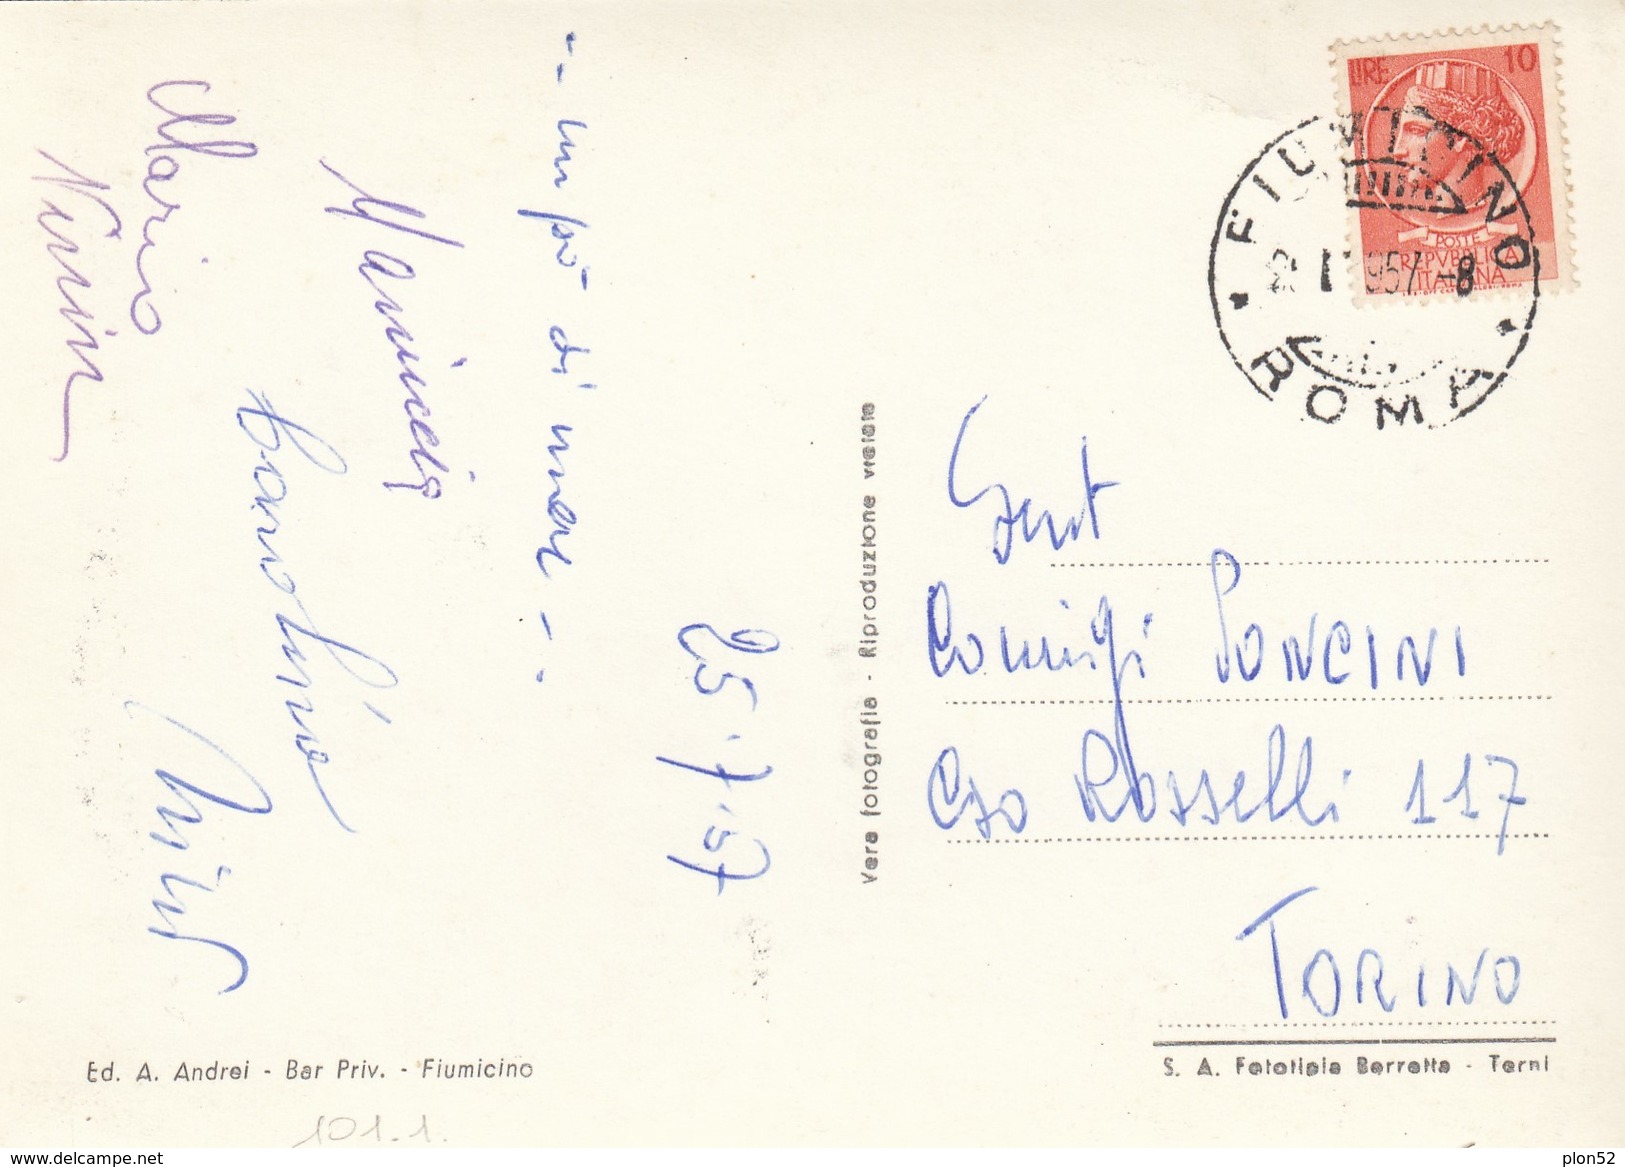 25·7·57
-- un pò di mare --
Mariuccia
Carolina
Mario
Ninin
LIRE 10
POSTE
REPVBBLICA
ITALIANA
FIUMICINO
957 -8
ROMA
Gent
Coniugi PONCINI
Cso Rosselli 117
TORINO
Vera fotografia - Riproduzione vietata
Ed. A. Andrei - Bar Priv. - Fiumicino
S. A. Fototipia Berretta - Terni
101-1.
https://www.delcampe.net
plon52